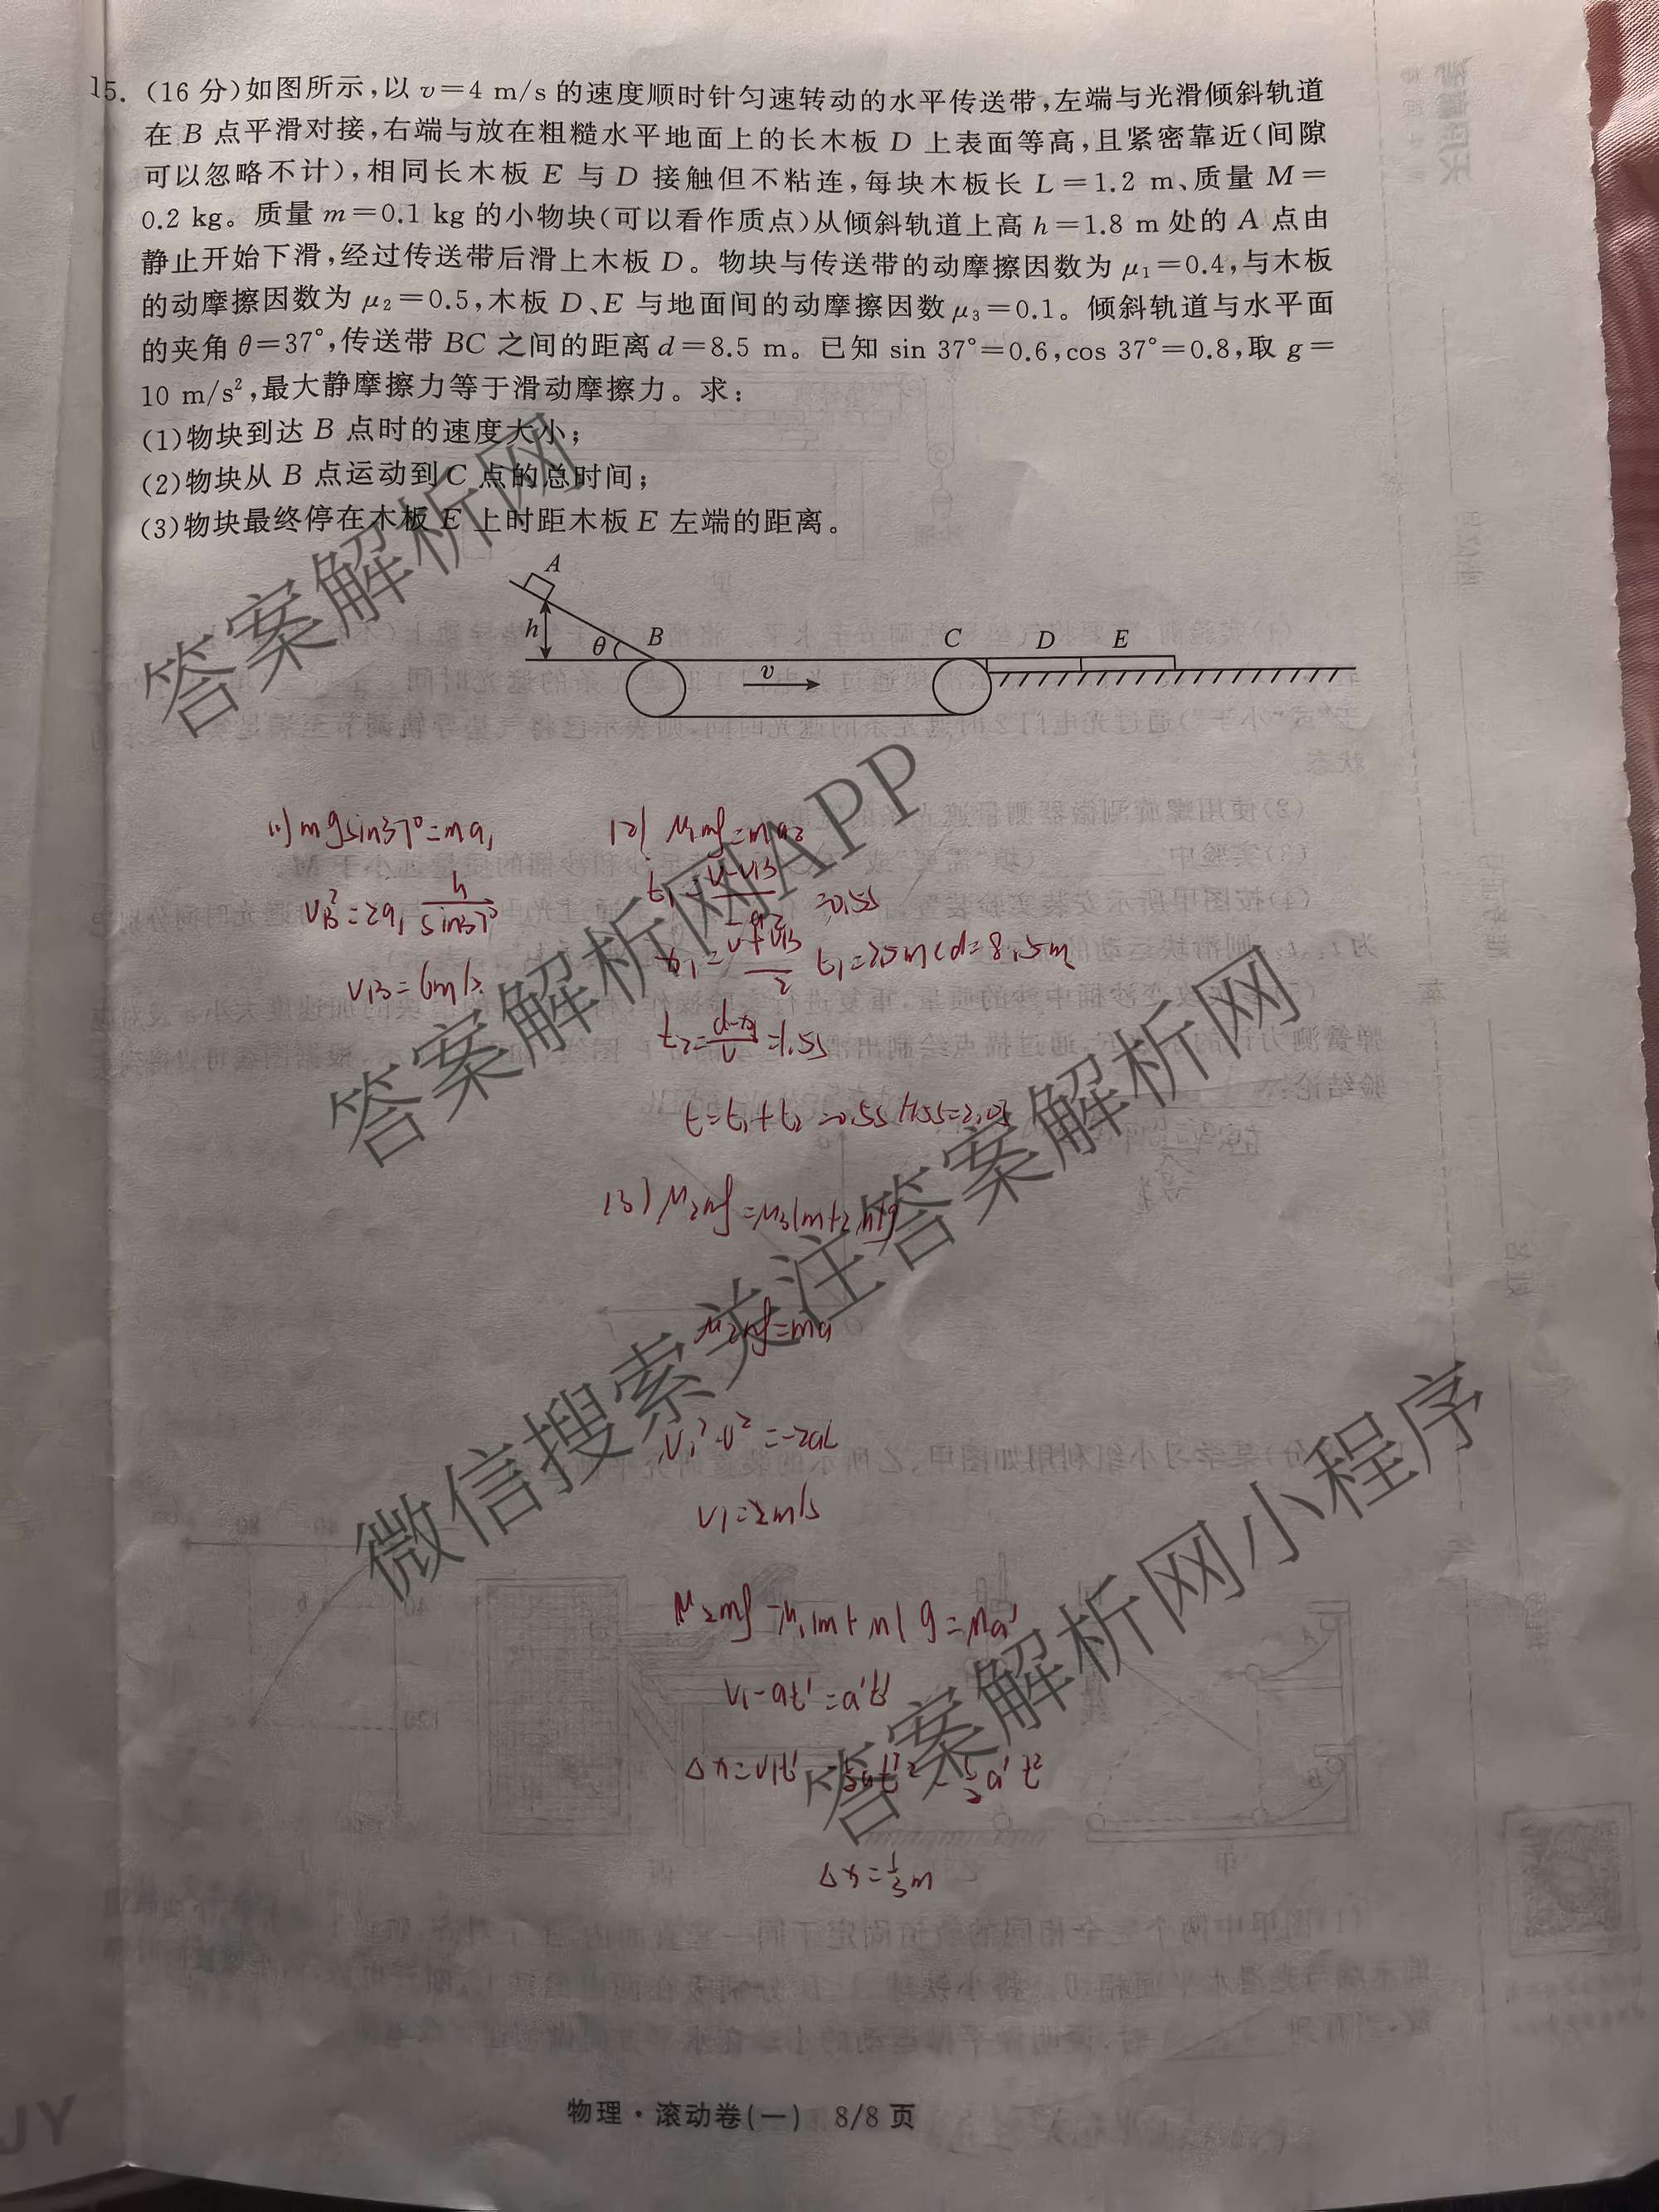 15. (16 分)如图所示,以 v=4 m/s 的速度顺时针匀速转动的水平传送带,左端与光滑倾斜轨道
在 B 点平滑对接,右端与放在粗糙水平地面上的长木板 D 上表面等高,且紧密靠近(间隙
可以忽略不计),相同长木板 E 与 D 接触但不粘连,每块木板长 L=1.2 m、质量 M=
0.2 kg。质量 m=0.1 kg 的小物块(可以看作质点)从倾斜轨道上高 h=1.8 m 处的 A 点由
静止开始下滑,经过传送带后滑上木板 D。物块与传送带的动摩擦因数为 μ₁=0.4,与木板
的动摩擦因数为 μ₂=0.5,木板 D、E 与地面间的动摩擦因数 μ₃=0.1。倾斜轨道与水平面
的夹角 θ=37°,传送带 BC 之间的距离 d=8.5 m。已知 sin 37°=0.6,cos 37°=0.8,取 g=
10 m/s²,最大静摩擦力等于滑动摩擦力。求:
(1)物块到达 B 点时的速度大小;
(2)物块从 B 点运动到 C 点的总时间;
(3)物块最终停在木板 E 上时距木板 E 左端的距离。
A
h
θ
B
v
C
D
E
(1) mgsin37°=ma₁
vB²=2a₁ h/sin37°
vB=6m/s
(2) μ₁mg=ma₂
=0.5s
t₁=2.5m<d=8.5m
t₂=(d-x₁)/v=1.5s
t=t₁+t₂=0.5s+1.5s=2.0s
(3) μ₂mg=μ₃(m+2M)g
μ₂mg=ma
v₁²-v²=-2aL
v₁=2m/s
v₁-at'=a't'
Δx=1/3m
物理·滚动卷(一) 8/8 页
JY
答案解析网
答案解析网APP
微信搜索关注答案解析网
答案解析网小程序